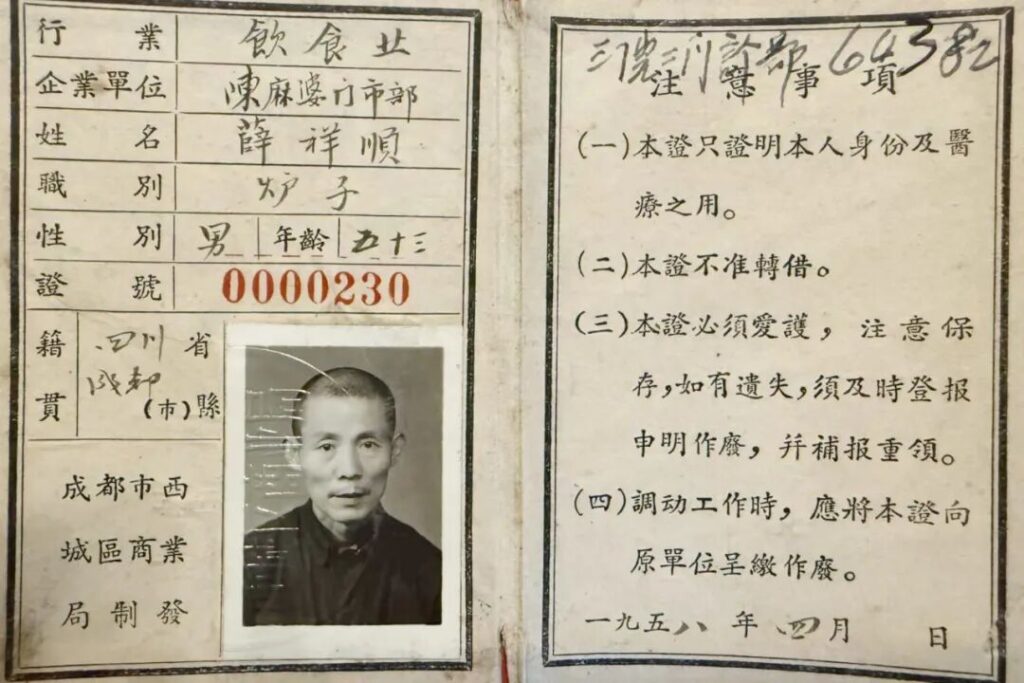 行業 飲食业
企業單位 陳麻婆门市部
姓名 薛祥順
職別 炉子
性別 男 年齡 五十三
證號 0000230
籍貫 四川省
成都(市)縣
成都市西
城區商業
局制發
三门診部 64382
注意事項
(一)本證只證明本人身份及醫
療之用。
(二)本證不准轉借。
(三)本證必須愛護,注意保
存,如有遺失,須及時登报
申明作廢,并補报重領。
(四)調动工作時,應將本證向
原單位呈繳作廢。
一九五八年四月 日